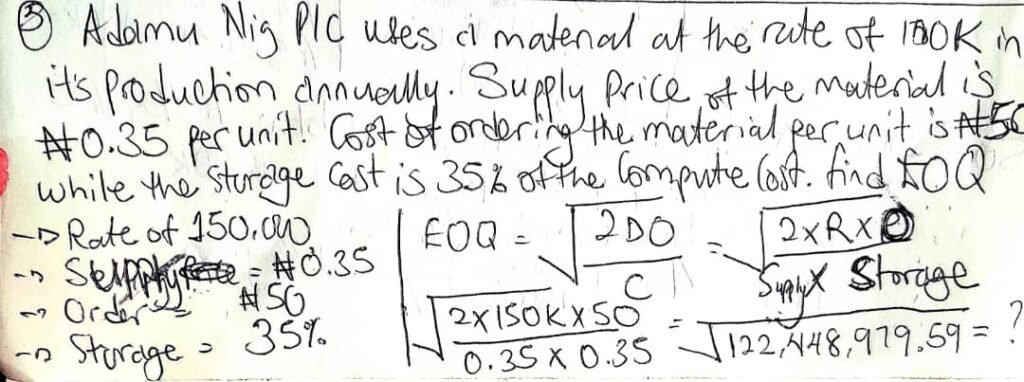 ③ Adamu Nig PLC uses a material at the rate of 150K in
it's production annually. Supply Price of the material is
₦0.35 per unit. Cost of ordering the material per unit is ₦50
while the storage cost is 35% of the compute cost. find EOQ
→ Rate of 150,000
→ Supply = ₦0.35
→ Order = ₦50
→ Storage = 35%
EOQ = √2DO / C = √2×R×O / Supply × Storage
√2×150K×50 / 0.35 × 0.35 = √122,448,979.59 = ?